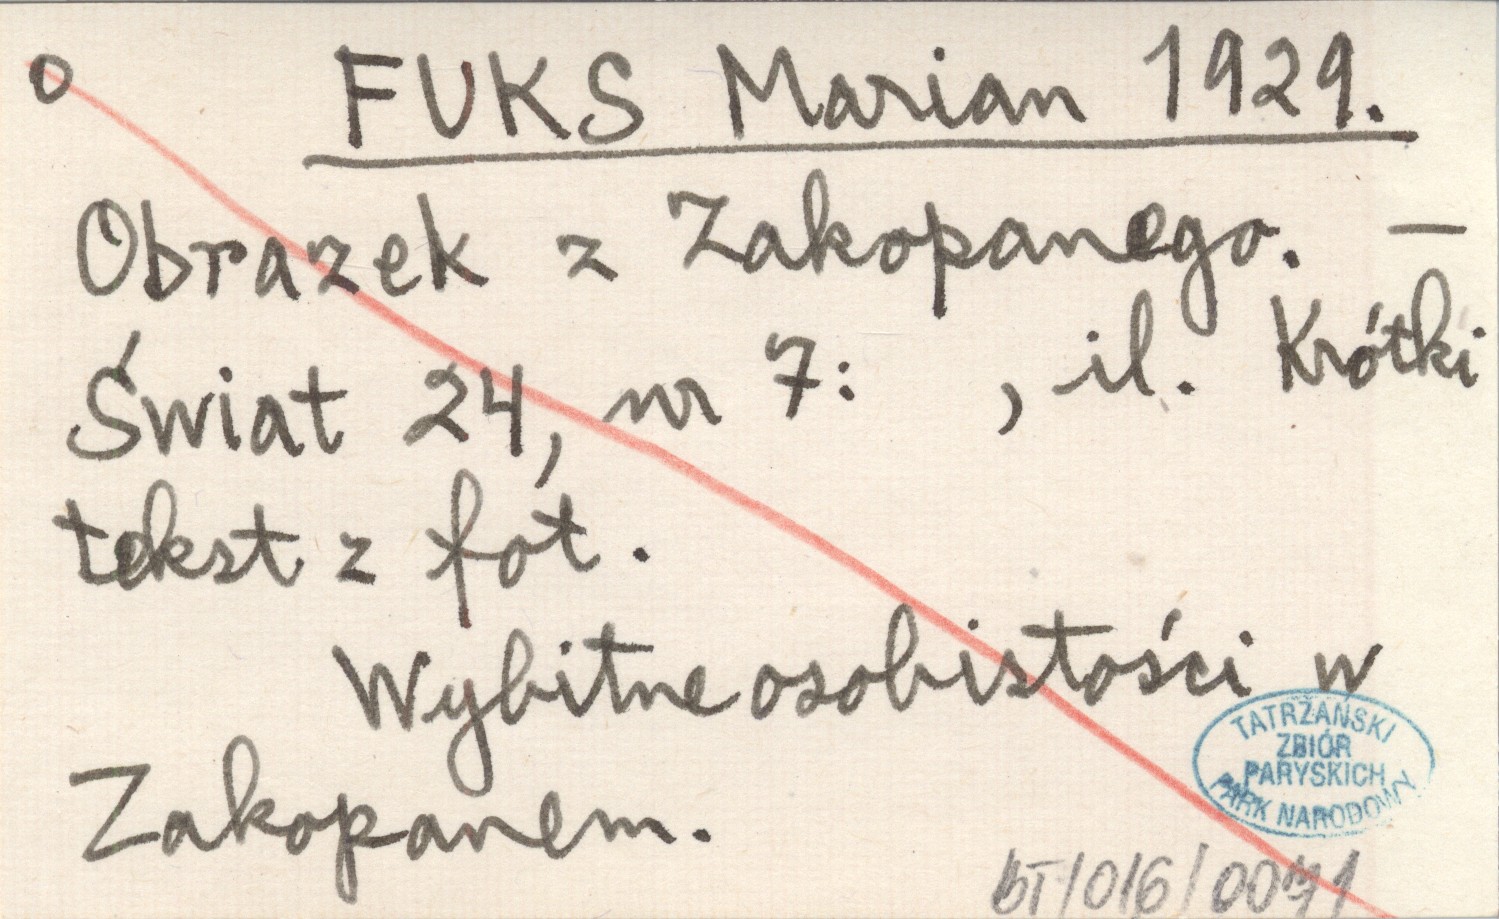 O FUKS Marian 1929.
Obrazek z Zakopanego. —
Świat 24, nr 7: , il. Krótki
tekst z fot.
Wybitne osobistości w
Zakopanem.
TATRZAŃSKI
ZBIÓR
PARYSKICH
PARK NARODOWY